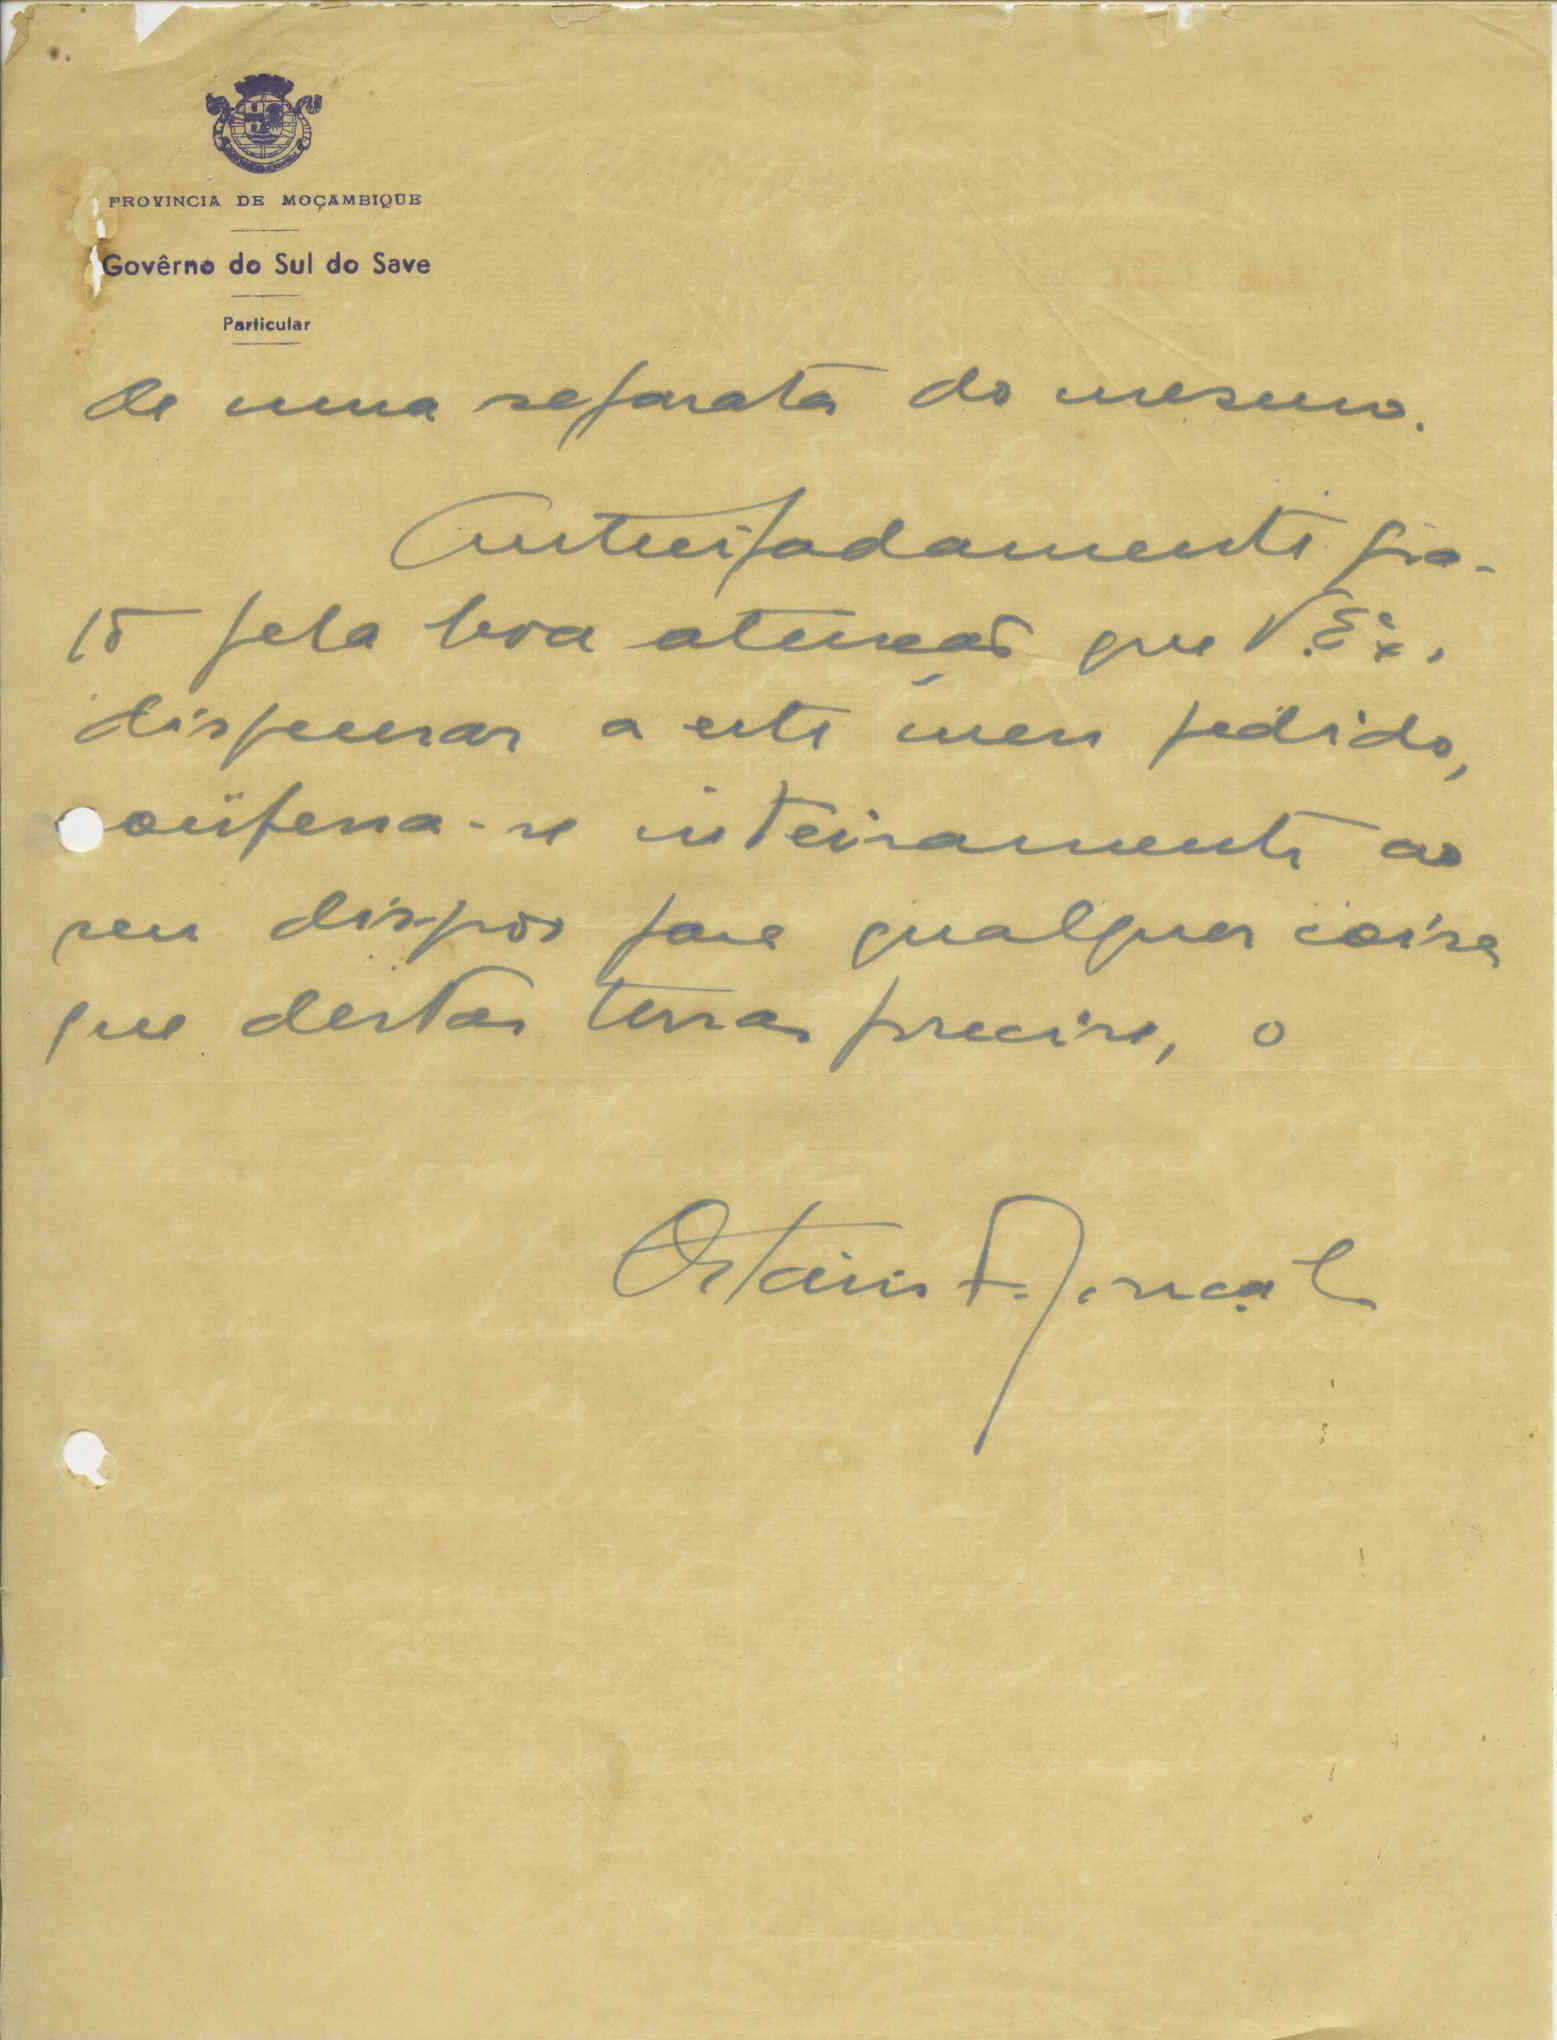 PROVINCIA DE MOÇAMBIQUE
Govêrno do Sul do Save
Particular
de uma separata do mesmo.
Antecipadamente gra-
to pela boa atenção que V. Exª.
dispensar a este meu pedido,
confessa-se inteiramente ao
seu dispor para qualquer coisa
que destas terras precise, o